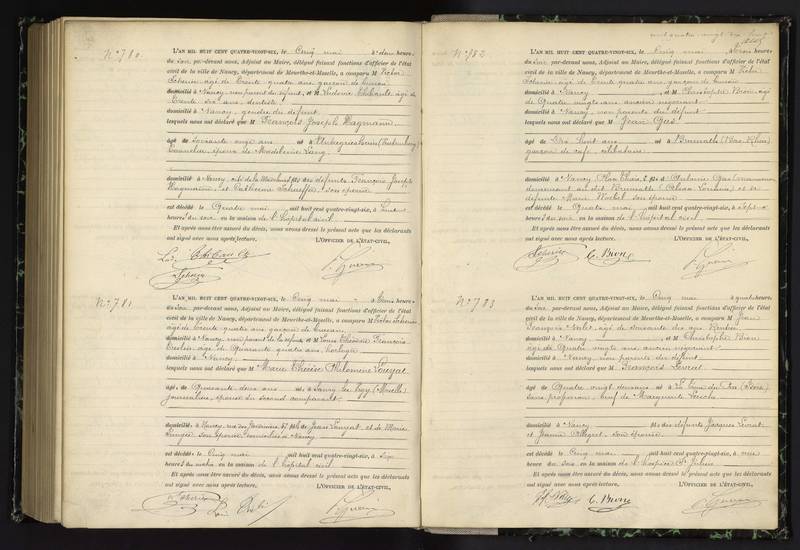 N° 780
L'AN MIL HUIT CENT QUATRE-VINGT-SIX, le Cinq mai à deux heures
du soir par-devant nous, Adjoint au Maire, délégué faisant fonctions d'officier de l'état
civil de la ville de Nancy, département de Meurthe-et-Moselle, a comparu M Victor
âgé de Trente quatre ans garçon de bureau
domicilié à Nancy, non parent du défunt, et M Ludovic âgé de
Trente six ans, dentiste
domicilié à Nancy, gendre du défunt
lesquels nous ont déclaré que M François Joseph Wagmann
âgé de soixante onze ans né à
Tonnelier, époux de Madeleine Lang
domicilié à Nancy, fils des défunts François Joseph
Wagmann et Catherine son épouse
est décédé le Quatre mai mil huit cent quatre-vingt-six, à
heures du soir en la maison de l'hôpital civil
Et après nous être assuré du décès, nous avons dressé le présent acte que les déclarants
ont signé avec nous après lecture. L'OFFICIER DE L'ÉTAT-CIVIL,
N° 781
L'AN MIL HUIT CENT QUATRE-VINGT-SIX, le Cinq mai à trois heures
du soir par-devant nous, Adjoint au Maire, délégué faisant fonctions d'officier de l'état
civil de la ville de Nancy, département de Meurthe-et-Moselle, a comparu M Victor
âgé de Trente quatre ans garçon de bureau
domicilié à Nancy, non parent de la défunte et M Louis Théodore François
âgé de Quarante quatre ans, horloger
domicilié à Nancy
lesquels nous ont déclaré que M Marie Thérèse Philomène Louyat
âgé de Quarante deux ans née à (Moselle)
journalière, épouse du second comparant
domicilié à Nancy, rue des Jardiniers, 57 fille de Jean Louyat et de Marie
son épouse domiciliés à Nancy
est décédé le Cinq mai mil huit cent quatre-vingt-six, à six
heures du matin en la maison de l'hôpital civil
Et après nous être assuré du décès, nous avons dressé le présent acte que les déclarants
ont signé avec nous après lecture. L'OFFICIER DE L'ÉTAT-CIVIL,
N° 782
L'AN MIL HUIT CENT QUATRE-VINGT-SIX, le Cinq mai à trois heures
du soir par-devant nous, Adjoint au Maire, délégué faisant fonctions d'officier de l'état
civil de la ville de Nancy, département de Meurthe-et-Moselle, a comparu M Victor
âgé de Trente quatre ans garçon de bureau
domicilié à Nancy, et M Christophe Bronn, âgé
de Quatre vingts ans ancien négociant
domicilié à Nancy, non parents du défunt
lesquels nous ont déclaré que M Jean
âgé de Dix huit ans né à Brumath (Bas-Rhin)
garçon de café, célibataire
domicilié à Nancy, fils d'Antoine
demeurant au dit Brumath (Alsace Lorraine) et de
défunte Marie son épouse
est décédé le Quatre mai mil huit cent quatre-vingt-six, à sept
heures du soir en la maison de l'hôpital civil
Et après nous être assuré du décès, nous avons dressé le présent acte que les déclarants
ont signé avec nous après lecture. L'OFFICIER DE L'ÉTAT-CIVIL,
N° 783
L'AN MIL HUIT CENT QUATRE-VINGT-SIX, le Cinq mai à quatre heures
du soir par-devant nous, Adjoint au Maire, délégué faisant fonctions d'officier de l'état
civil de la ville de Nancy, département de Meurthe-et-Moselle, a comparu M Jean
François âgé de soixante dix ans Rentier
domicilié à Nancy et M Christophe Bronn
âgé de Quatre vingts ans ancien négociant
domicilié à Nancy, non parents du défunt
lesquels nous ont déclaré que M François
âgé de Quatre vingt deux ans né à La Tour du Pin (Isère)
sans profession, veuf de Marguerite
domicilié à Nancy fils des défunts Jacques
et Jeanne son épouse
est décédé le Cinq mai mil huit cent quatre-vingt-six, à une
heure du soir en la maison de l'hospice St Julien
Et après nous être assuré du décès, nous avons dressé le présent acte que les déclarants
ont signé avec nous après lecture. L'OFFICIER DE L'ÉTAT-CIVIL,